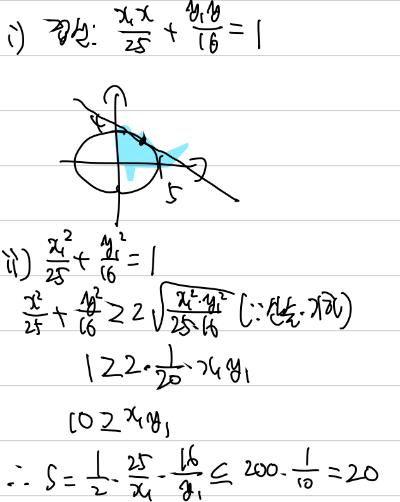 i) 접선: x₁x/25 + y₁y/16 = 1
4
5
ii) x₁²/25 + y₁²/16 = 1
x²/25 + y²/16 ≥ 2√(x₁²·y₁²/25·16) (∵산술·기하)
1 ≥ 2·1/20·x₁y₁
10 ≥ x₁y₁
∴ S = 1/2·25/x₁·16/y₁ ≤ 200·1/10 = 20